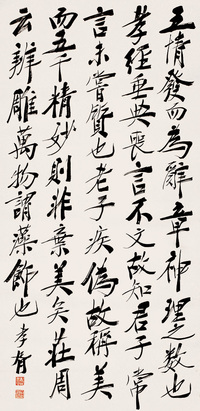 五情發而為辭章神理之數也
孝經垂典喪言不文故知君子常
言未嘗質也老子疾偽故稱美
而五千精妙則非棄美矣莊周
云辨雕萬物謂藻飾也孝胥